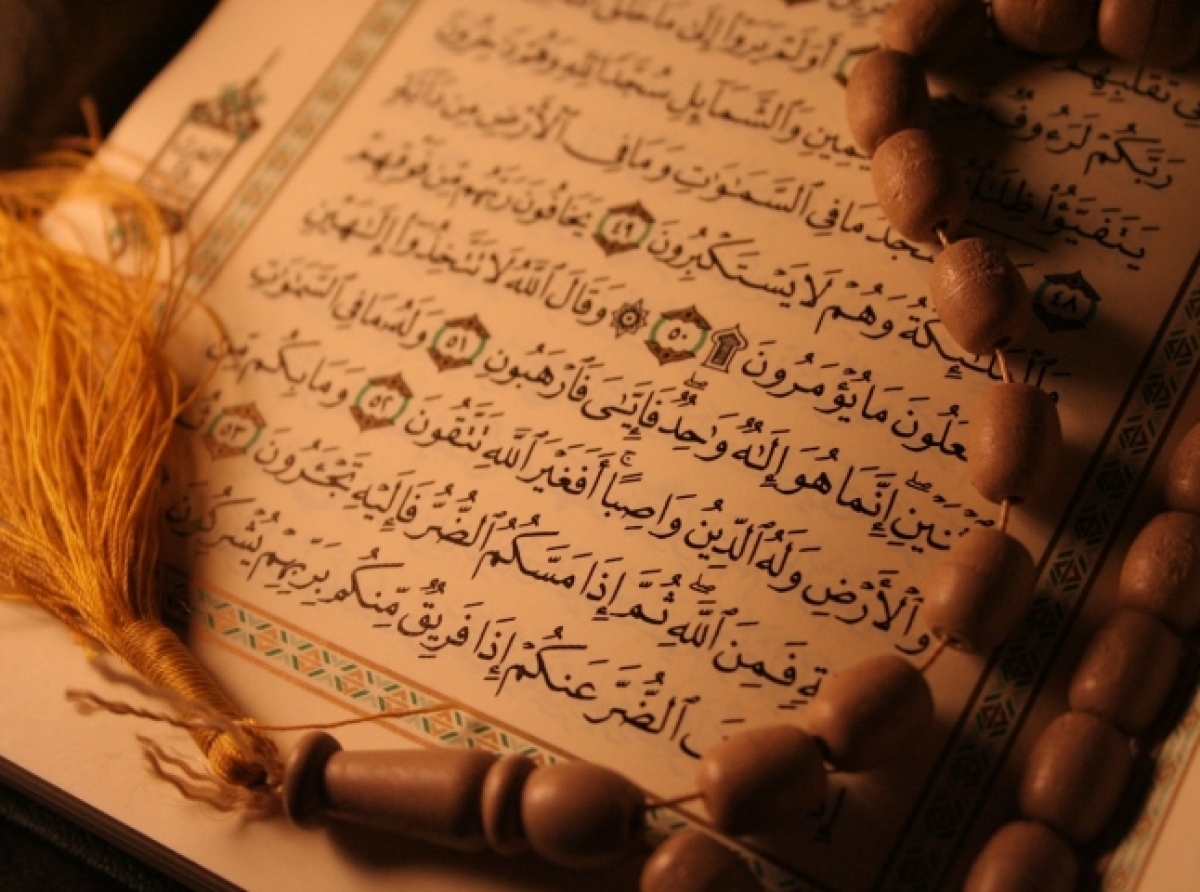 فِى تَقَلُّبِهِمْ
رَبَّكُمْ لَرَءُوفٌ أَوَلَمْ يَرَوْا۟ إِلَىٰ مَا خَلَقَ
يَتَفَيَّؤُا۟ ظِلَٰلُهُۥ ٱلْيَمِينِ وَٱلشَّمَآئِلِ سُجَّدًا لِّلَّهِ وَهُمْ دَٰخِرُونَ
٤٨ مَا فِى ٱلسَّمَٰوَٰتِ وَمَا فِى ٱلْأَرْضِ مِن دَآبَّةٍ
وَٱلْمَلَٰٓئِكَةُ وَهُمْ لَا يَسْتَكْبِرُونَ ٤٩ يَخَافُونَ رَبَّهُم مِّن فَوْقِهِمْ
مَا يُؤْمَرُونَ ۩ ٥٠ ۞ وَقَالَ ٱللَّهُ لَا تَتَّخِذُوٓا۟ إِلَٰهَيْنِ
ٱثْنَيْنِ ۖ إِنَّمَا هُوَ إِلَٰهٌ وَٰحِدٌ ۖ فَإِيَّٰىَ فَٱرْهَبُونِ ٥١ وَلَهُۥ مَا فِى ٱلسَّمَٰوَٰتِ
وَٱلْأَرْضِ وَلَهُ ٱلدِّينُ وَاصِبًا ۚ أَفَغَيْرَ ٱللَّهِ تَتَّقُونَ ٥٢ وَمَا بِكُم مِّن
فَمِنَ ٱللَّهِ ۖ ثُمَّ إِذَا مَسَّكُمُ ٱلضُّرُّ فَإِلَيْهِ تَجْـَٔرُونَ ٥٣
ٱلضُّرَّ عَنكُمْ إِذَا فَرِيقٌ مِّنكُم بِرَبِّهِمْ يُشْرِكُونَ